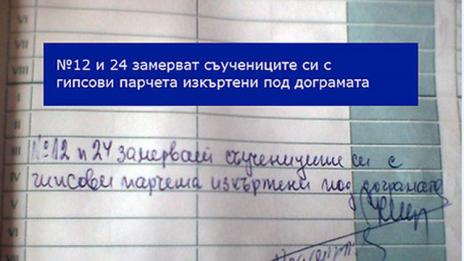 VI
№12 и 24 замерват съучениците си с
гипсови парчета изкъртени под дограмата
VII
VIII
I
II
III
№12 и 24 замерват съучениците си с
IV
гипсови парчета изкъртени под дограмата
V
VI
VII